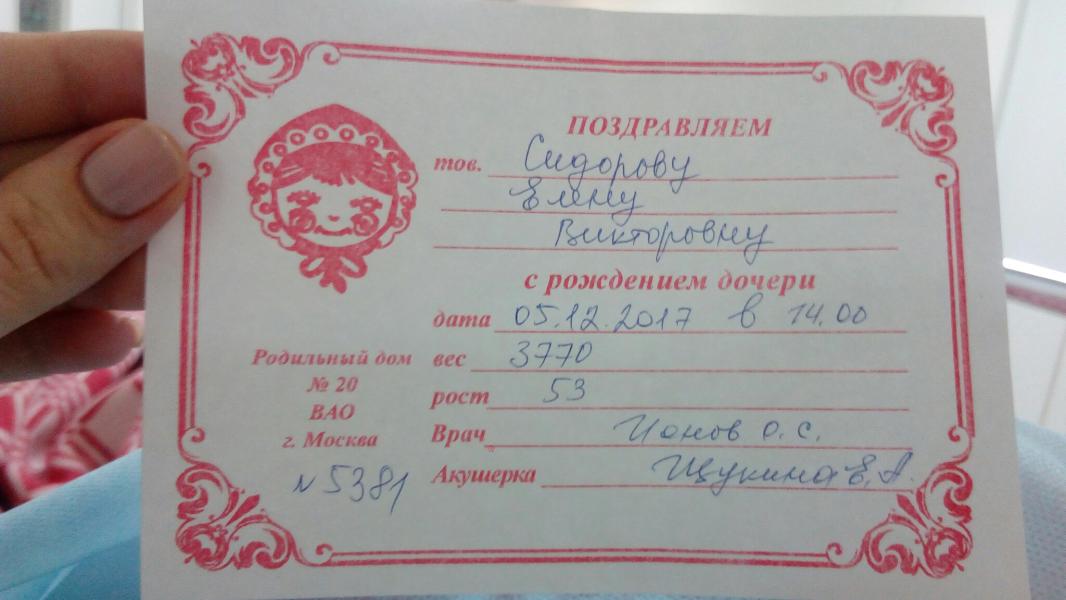 ПОЗДРАВЛЯЕМ
тов. Сидорову
Елену
Викторовну
с рождением дочери
дата 05.12.2017 в 14.00
вес 3770
рост 53
Врач Ионов О.С.
Акушерка Щукина Е.А.
Родильный дом
№ 20
ВАО
г. Москва
N 5381